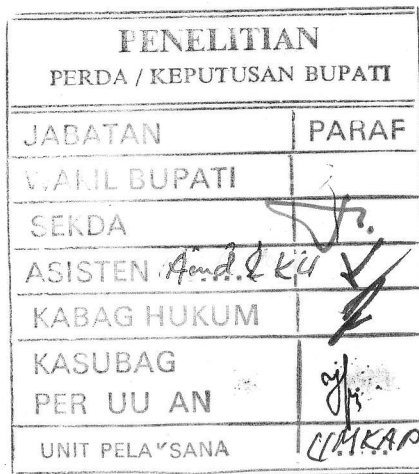 PENELITIAN
PERDA / KEPUTUSAN BUPATI
JABATAN PARAF
WAKIL BUPATI
SEKDA
ASISTEN
KABAG HUKUM
KASUBAG
PER UU AN
UNIT PELAKSANA UMKAP